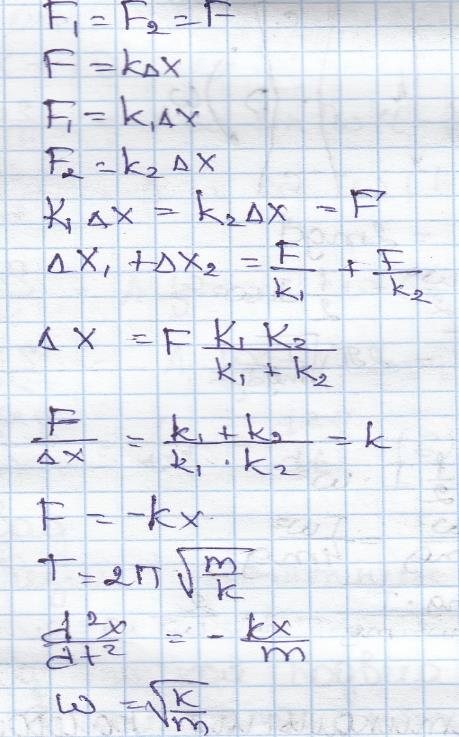 F₁ = F₂ = F
F = kΔx
F₁ = k₁Δx
F₂ = k₂Δx
K₁Δx = k₂Δx = F
Δx₁ + Δx₂ = F/k₁ + F/k₂
Δx = F K₁K₂/(k₁ + k₂)
F/Δx = (k₁ + k₂)/(k₁ · k₂) = k
F = -kx
T = 2π√(m/k)
d²x/dt² = - kx/m
ω = √(k/m)